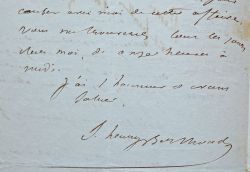 causer avec moi de cette affaire
vous me trouverez tous les jours
chez moi, de onze heures à
midi.
J'ai l'honneur de vous
saluer.
J. henry Berthoud